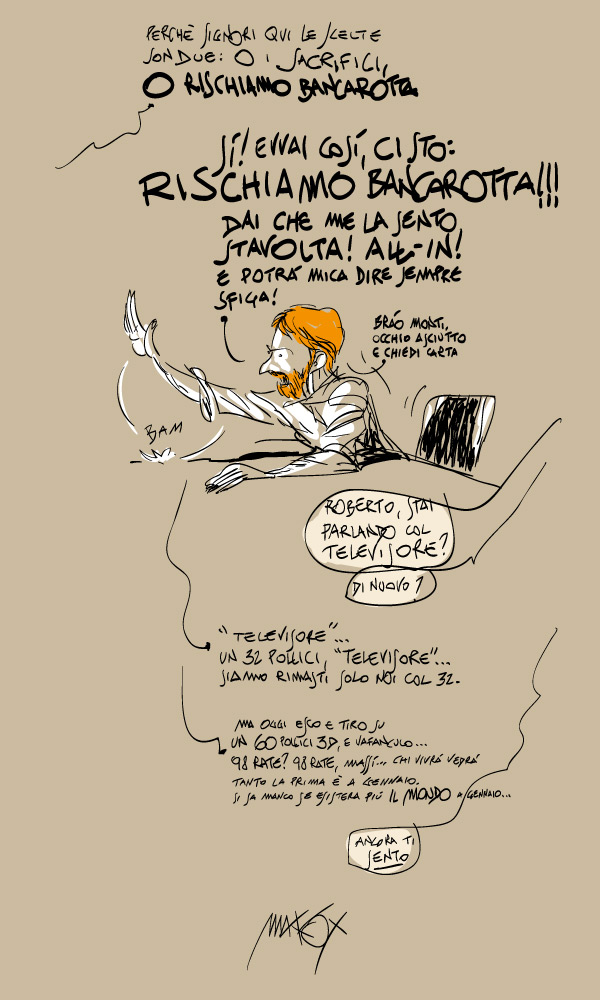 PERCHÈ SIGNORI QUI LE SCELTE
SON DUE: O I SACRIFICI,
O RISCHIAMO BANCAROTTA
SÍ! EVVAI COSÍ, CI STO:
RISCHIAMO BANCAROTTA!!!
DAI CHE ME LA SENTO
STAVOLTA! ALL-IN!
E POTRÁ MICA DIRE SEMPRE
SFIGA!
BRÁO MONTI,
OCCHIO ASCIUTTO
E CHIEDI CARTA
BAM
ROBERTO, STAI
PARLANDO COL
TELEVISORE?
DI NUOVO?
"TELEVISORE"...
UN 32 POLLICI, "TELEVISORE"...
SIAMO RIMASTI SOLO NOI COL 32.
MA OGGI ESCO E TIRO SU
UN 60 POLLICI 3D, E VAFANCULO...
98 RATE? 98 RATE, MASSÍ... CHI VIVRÁ VEDRÁ
TANTO LA PRIMA È A GENNAIO.
SI SA MANCO SE ESISTERÁ PIÙ IL MONDO A GENNAIO...
ANCORA TI
SENTO
MAKKOX